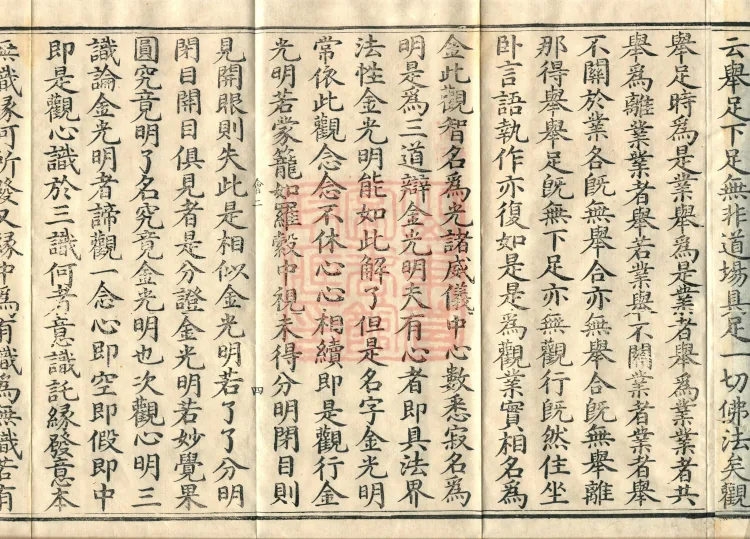 云舉足下足無非道場具足一切佛法矣觀
舉足時爲是業舉爲是業者舉爲業業者共
舉爲離業業者舉若業舉不關業者業者舉
不關於業各旣無舉合亦無舉合旣無舉離
那得舉舉足旣無下足亦無觀行旣然住坐
卧言語執作亦復如是是爲觀業實相名爲
金此觀智名爲光諸威儀中心數悉寂名爲
明是爲三道辯金光明夫有心者即具法界
法性金光明能如此解了但是名字金光明
常依此觀念念不休心心相續即是觀行金
光明若蒙籠如羅縠中視未得分明閉目則
會二
四
見開眼則失此是相似金光明若了了分明
閉目開目俱見者是分證金光明若妙覺果
圓究竟明了名究竟金光明也次觀心明三
識論金光明者諦觀一念心即空即假即中
即是觀心識於三識何者意識託緣發意本
無識緣何所發又緣中爲有識爲無識若有